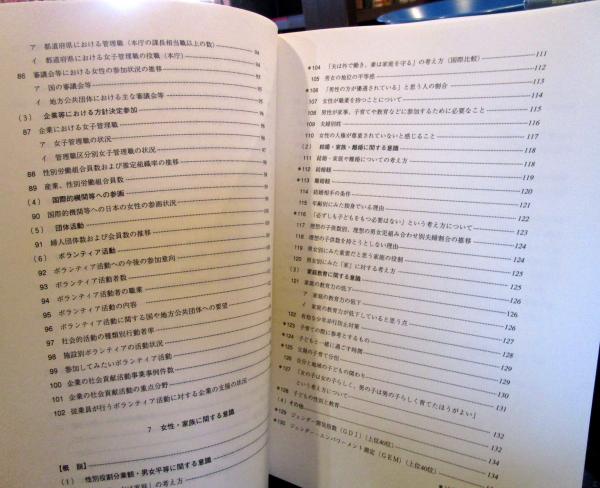 ア 都道府県における管理職（本庁の課長相当職以上の数） 94
イ 都道府県における女子管理職の役職（本庁） 94
86 審議会等における女性の参加状況の推移
ア 国の審議会等
イ 地方公共団体における主な審議会等
（3） 企業等における方針決定参加
87 企業における女子管理職
ア 女子管理職の状況
イ 管理職区分別女子管理職の状況
88 性別労働組合員数および推定組織率の推移
89 産業、性別労働組合員数
（4） 国際的機関等への参画
90 国際的機関等への日本の女性の参画状況
（5） 団体活動
91 婦人団体数および会員数の推移
（6） ボランティア活動
92 ボランティア活動への今後の参加意向
93 ボランティア活動者数
94 ボランティア活動者の職業
95 ボランティア活動の内容
96 ボランティア活動に関する国や地方公共団体への要望
97 社会的活動の種類別行動者率
98 施設別ボランティアの活動状況
99 参加してみたいボランティア活動
100 企業の社会貢献活動事業事例件数
101 企業の社会貢献活動の重点分野
102 従業員が行うボランティア活動に対する企業の支援の状況
7 女性・家族に関する意識
【概 説】
（1） 性別役割分業観・男女平等に関する意識
＊104 「夫は外で働き、妻は家庭を守る」の考え方（国際比較） 111
105 男女の地位の平等感 112
＊106 「男性の方が優遇されている」と思う人の割合 112
107 女性が職業を持つことについて 113
108 男性が家事、子育てや教育などに参加するために必要なこと 114
109 夫婦別姓 115
110 女性の人権が尊重されていないと感じること 116
（2） 結婚・家族・離婚に関する意識 117
111 結婚・家族や離婚についての考え方 118
＊112 結婚観 118
＊113 離婚観 119
114 結婚相手の条件 120
115 年齢別にみた独身でいる理由 121
＊116 「必ずしも子どもをもつ必要はない」という考え方について 122
117 理想の子供数別、理想の男女児組み合わせ別夫婦割合の推移 123
118 理想の子供数を持とうとしない理由 124
119 男女別にみた重要だと思う家庭の役割 124
120 男女別にみた「家」に対する考え方 125
（3） 家庭教育に関する意識 126
121 家庭の教育力の低下 126
ア 家庭の教育力の低下 126
イ 家庭の教育力が低下していると思う点 126
122 有効な少年非行防止対策 127
＊123 子育ての際に参考とするもの 128
＊124 子どもと一緒に過ごす時間 128
＊125 父親の子育て分担 129
＊126 自分と地域の子どもの関わり 129
＊127 「女の子は女の子らしく、男の子は男の子らしく育てたほうがよい」
という考え方について 131
＊128 子どもの性別と教育
（4） その他 132
＊129 ジェンダー開発指数（GDI）（上位40位） 132
＊130 ジェンダー・エンパワーメント測定（GEM）（上位40位） 134